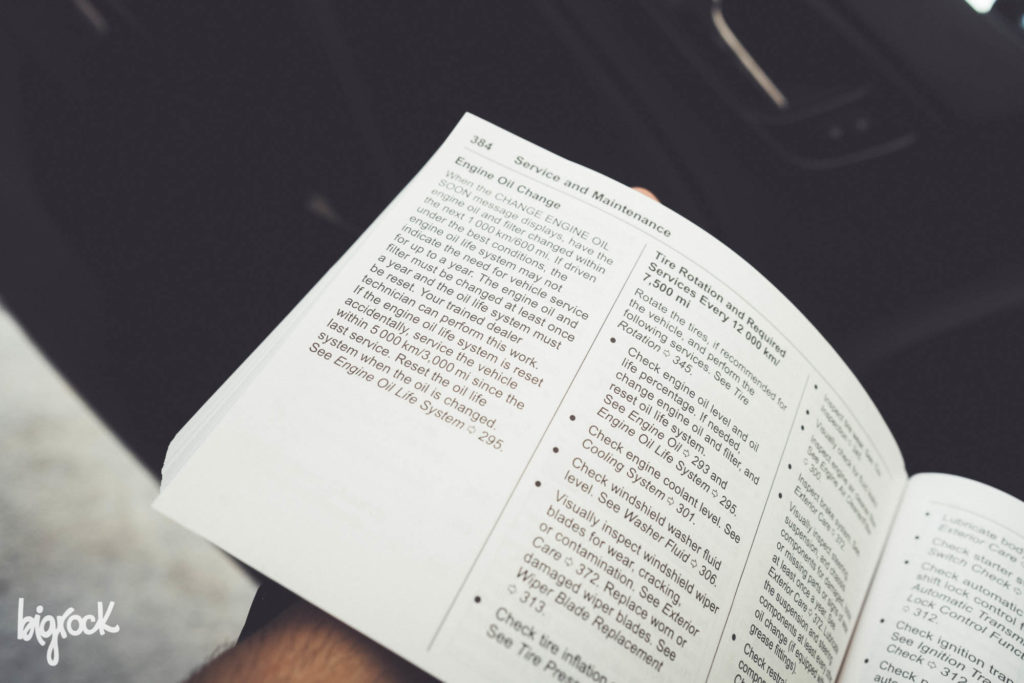 384 Service and Maintenance
Engine Oil Change
When the CHANGE ENGINE OIL
SOON message displays, have the
engine oil and filter changed within
the next 1 000 km/600 mi. If driven
under the best conditions, the
engine oil life system may not
indicate the need for vehicle service
for up to a year. The engine oil and
filter must be changed at least once
a year and the oil life system must
be reset. Your trained dealer
technician can perform this work.
If the engine oil life system is reset
accidentally, service the vehicle
within 5 000 km/3,000 mi since the
last service. Reset the oil life
system when the oil is changed.
See Engine Oil Life System ➪ 295.
Tire Rotation and Required
Services Every 12 000 km/
7,500 mi
Rotate the tires, if recommended for
the vehicle, and perform the
following services. See Tire
Rotation ➪ 345.
• Check engine oil level and oil
life percentage. If needed,
change engine oil and filter, and
reset oil life system.
See Engine Oil ➪ 293 and
Engine Oil Life System ➪ 295.
• Check engine coolant level. See
Cooling System ➪ 301.
• Check windshield washer fluid
level. See Washer Fluid ➪ 306.
• Visually inspect windshield wiper
blades for wear, cracking,
or contamination. See Exterior
Care ➪ 372. Replace worn or
damaged wiper blades. See
Wiper Blade Replacement
➪ 313.
• Check tire inflation
See Tire Press
• Visually
• Inspect engine air
See Engine Air
• Inspect brake system. See
Exterior Care ➪ 372.
• Visually inspect steering,
suspension, and chassis
components for damage,
or missing parts
at least once a year. See
Exterior Care
the suspension and steering
components at least every
oil change (if equipped
grease fittings).
• Check restra
component
• Lubricate bod
Exterior Care
• Check starter s
Switch Check ➪
• Check automatic
shift lock control f
Automatic Transm
Lock Control Func
➪ 312.
• Check ignition tran
See Ignition Tran
Check ➪ 312
• Check
auto
bigrock